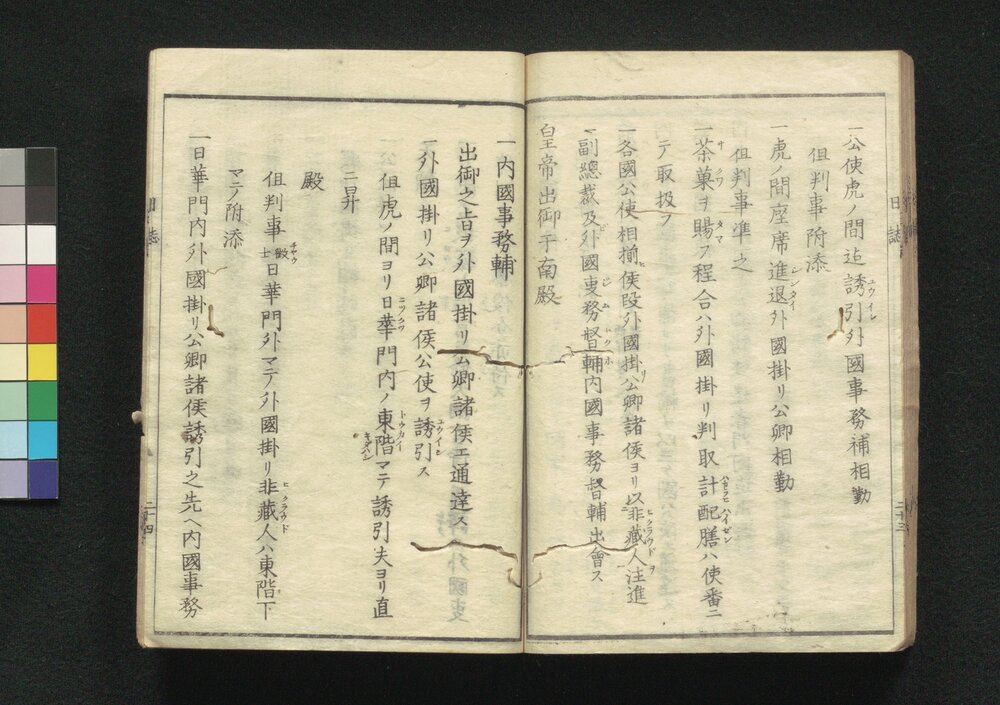 一公使虎ノ間迠誘引外國事務補相勤
但判事附添
一虎ノ間座席進退外國掛リ公卿相勤
但判事準之
一茶菓ヲ賜フ程合ハ外國掛リ判取計配膳ハ使番ニ
テ取扱フ
一各國公使相揃候段外國掛リ公卿諸侯ヨリ以非藏人注進
一副總裁及外國事務督輔内國事務督輔出會ス
皇帝出御于南殿
日誌
二十三
一内國事務輔
出御之上旨ヲ外國掛リ公卿諸侯エ通達ス
一外國掛リ公卿諸侯公使ヲ誘引ス
但虎ノ間ヨリ日華門内ノ東階マテ誘引夫ヨリ直
ニ昇
殿
但判事徴士日華門外マテ外國掛リ非藏人ハ東階下
マテ附添
一日華門内外國掛リ公卿諸侯誘引之先ヘ内國事務
日誌
二十四